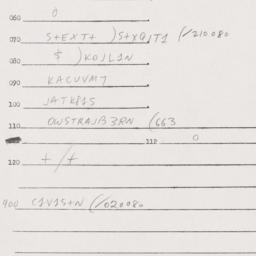 060 0
070 S+EX+ )S+XQJT1 (/210.080
080 $ )KOJL1N
090 KACUVM7
100 JATK815
110 OWSTRAJB3RN (663
112 0
120 +/+
400 C1V1S+N (/020080